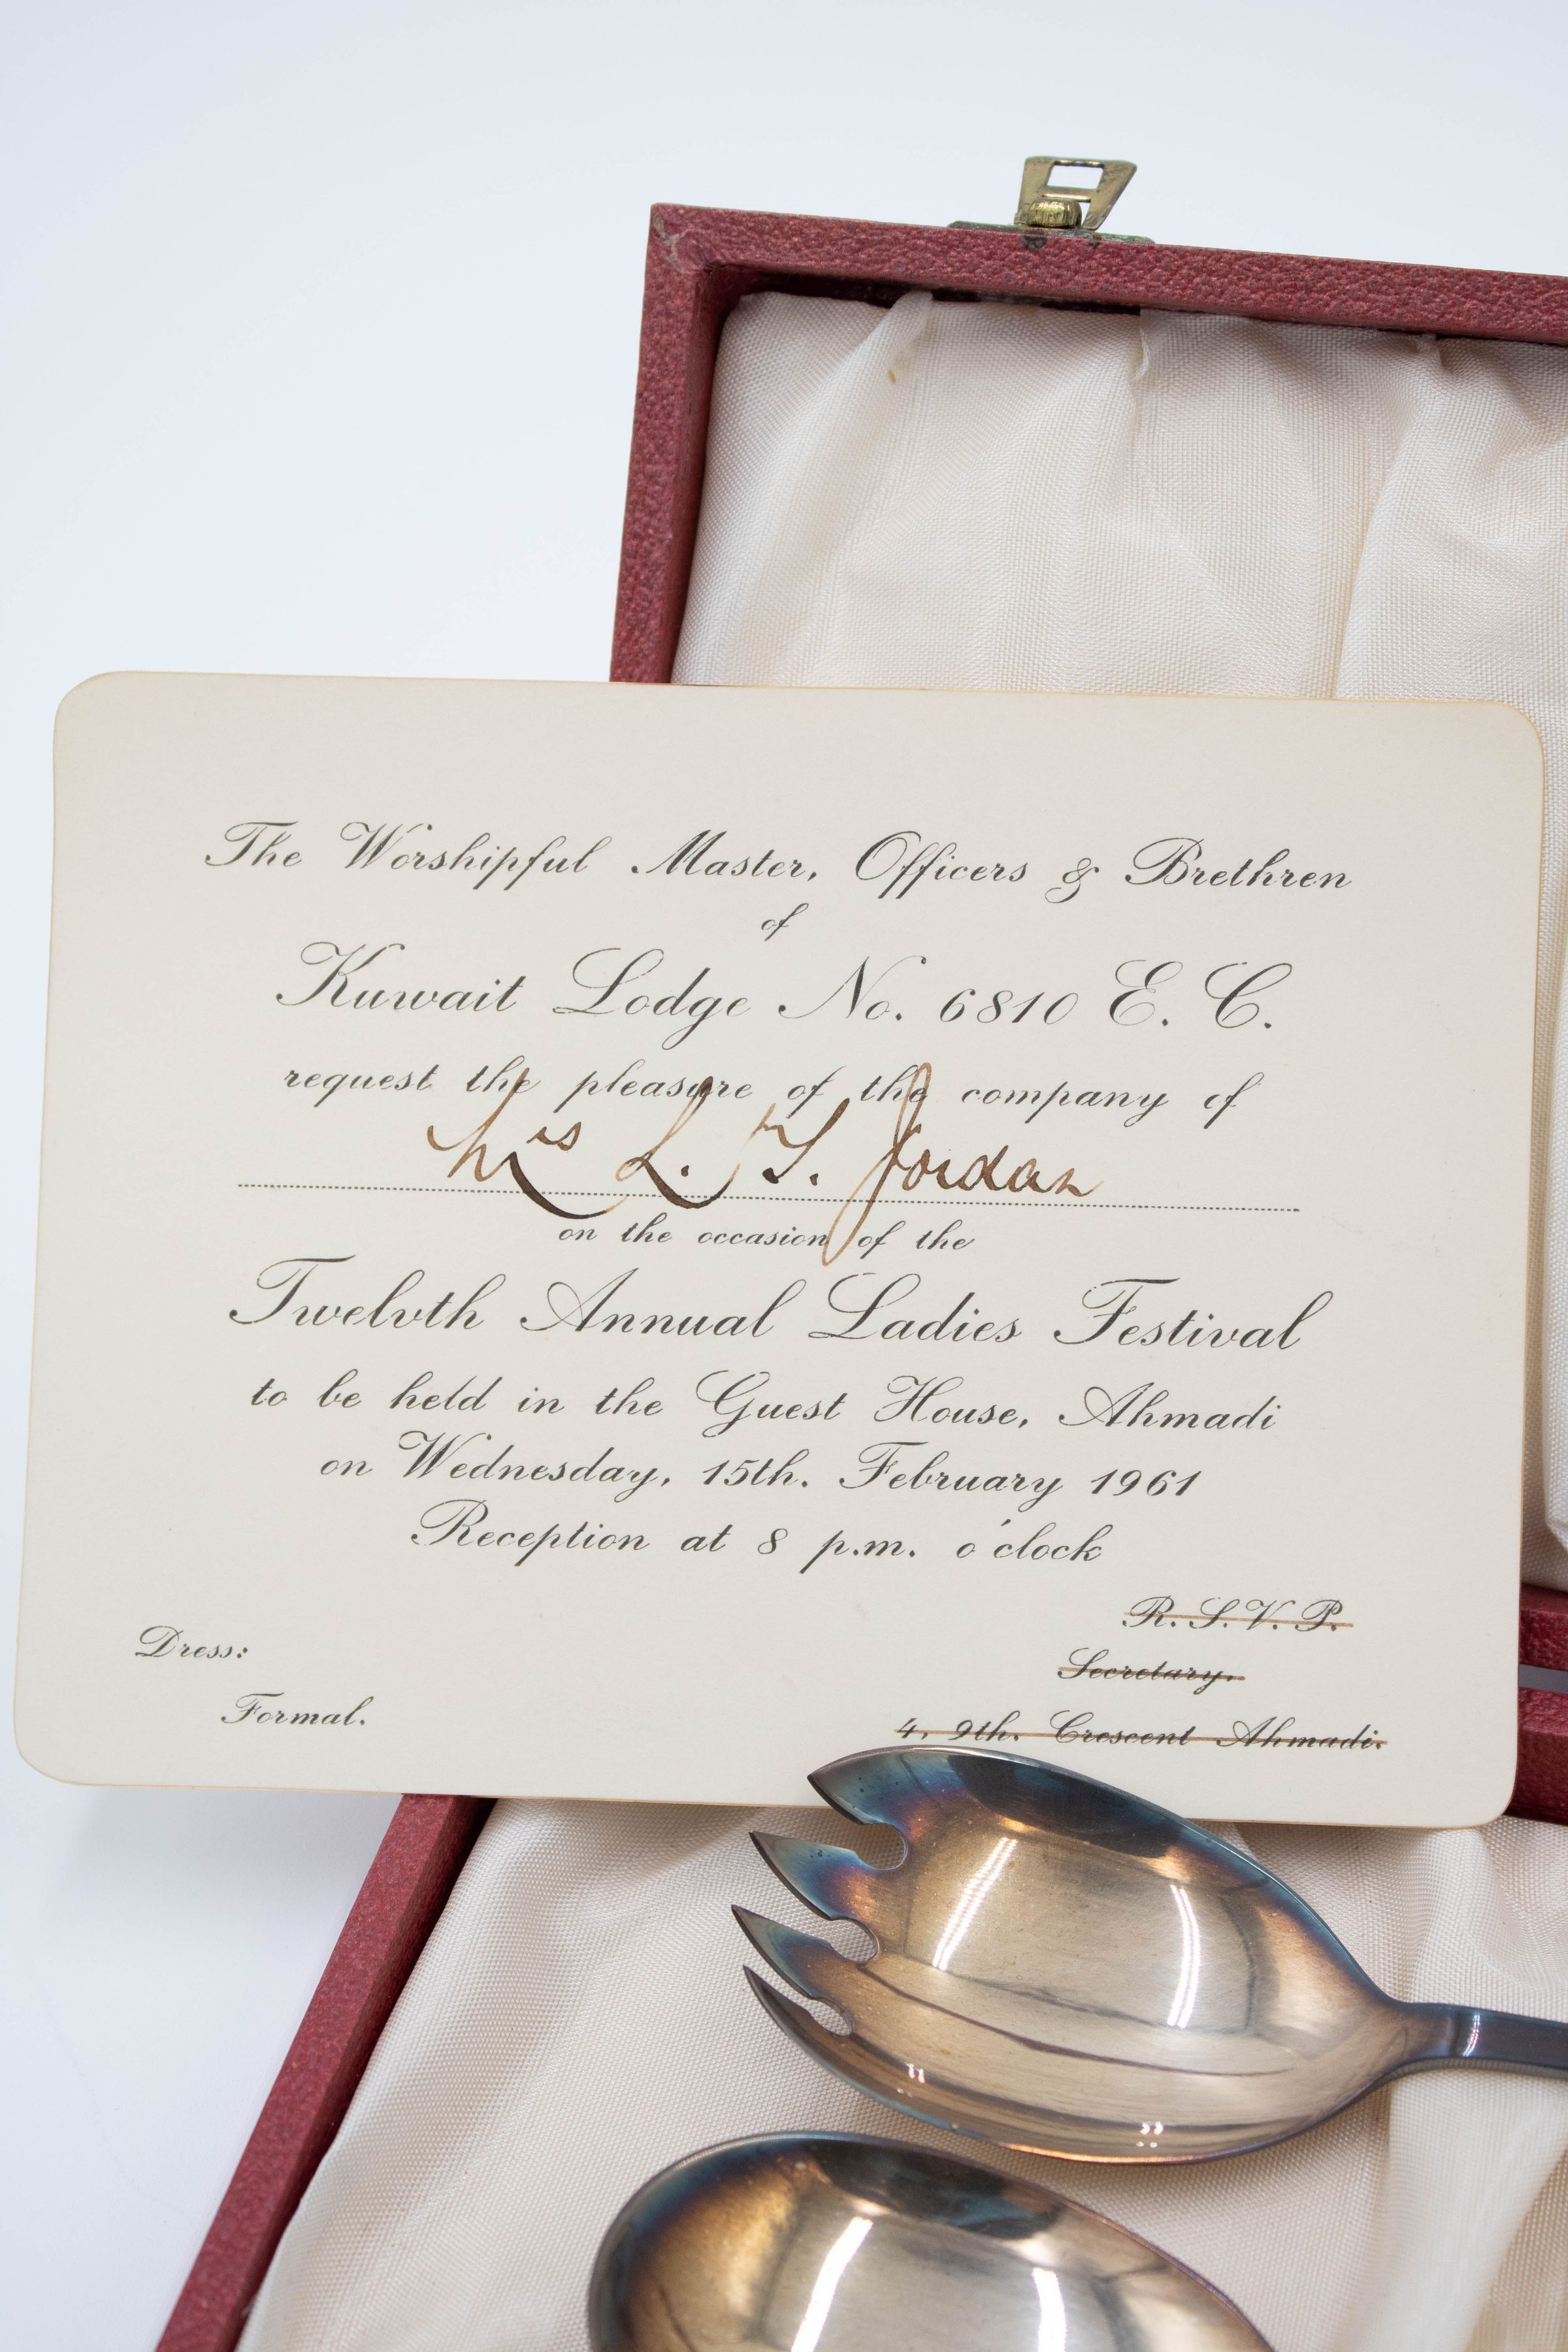 The Worshipful Master, Officers & Brethren
of
Kuwait Lodge No. 6810 E. C.
request the pleasure of the company of
Mrs L. T. Jordan
on the occasion of the
Twelvth Annual Ladies Festival
to be held in the Guest House, Ahmadi
on Wednesday, 15th. February 1961
Reception at 8 p.m. o'clock
R. S. V. P.
Secretary.
4, 9th. Crescent Ahmadi.
Dress:
Formal.